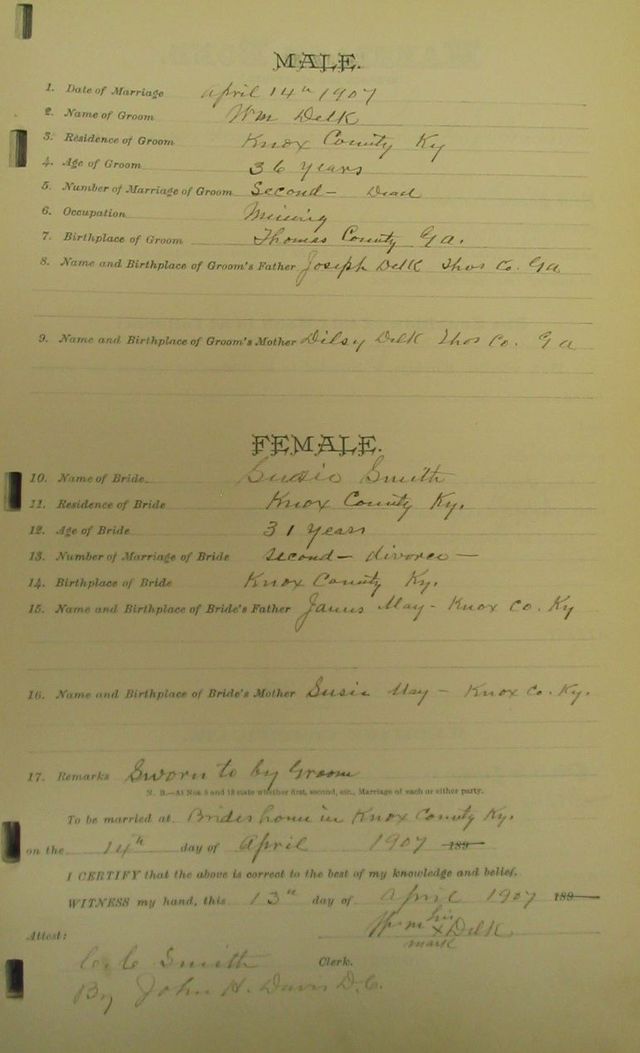 MALE.
1. Date of Marriage April 14th 1907
2. Name of Groom Wm Delk
3. Residence of Groom Knox County Ky
4. Age of Groom 36 years
5. Number of Marriage of Groom Second- Dead
6. Occupation Mining
7. Birthplace of Groom Thomas County Ga.
8. Name and Birthplace of Groom's Father Joseph Delk Thos Co. Ga
9. Name and Birthplace of Groom's Mother Dilsy Delk Thos Co. Ga
FEMALE.
10. Name of Bride Susie Smith
11. Residence of Bride Knox County Ky.
12. Age of Bride 31 years
13. Number of Marriage of Bride second- divorce-
14. Birthplace of Bride Knox County Ky.
15. Name and Birthplace of Bride's Father James May- Knox Co. Ky
16. Name and Birthplace of Bride's Mother Susie May - Knox Co. Ky.
17. Remarks Sworn to by Groom
N. B.—At Nos 5 and 13 state whether first, second, etc., Marriage of each or either party.
To be married at Brides home in Knox County Ky.
on the 14th day of April 1907 189
I CERTIFY that the above is correct to the best of my knowledge and belief.
WITNESS my hand, this 13th day of April 1907 189
his
Wm x Delk
mark
Attest:
C. C. Smith Clerk.
By John H. Davis D.C.